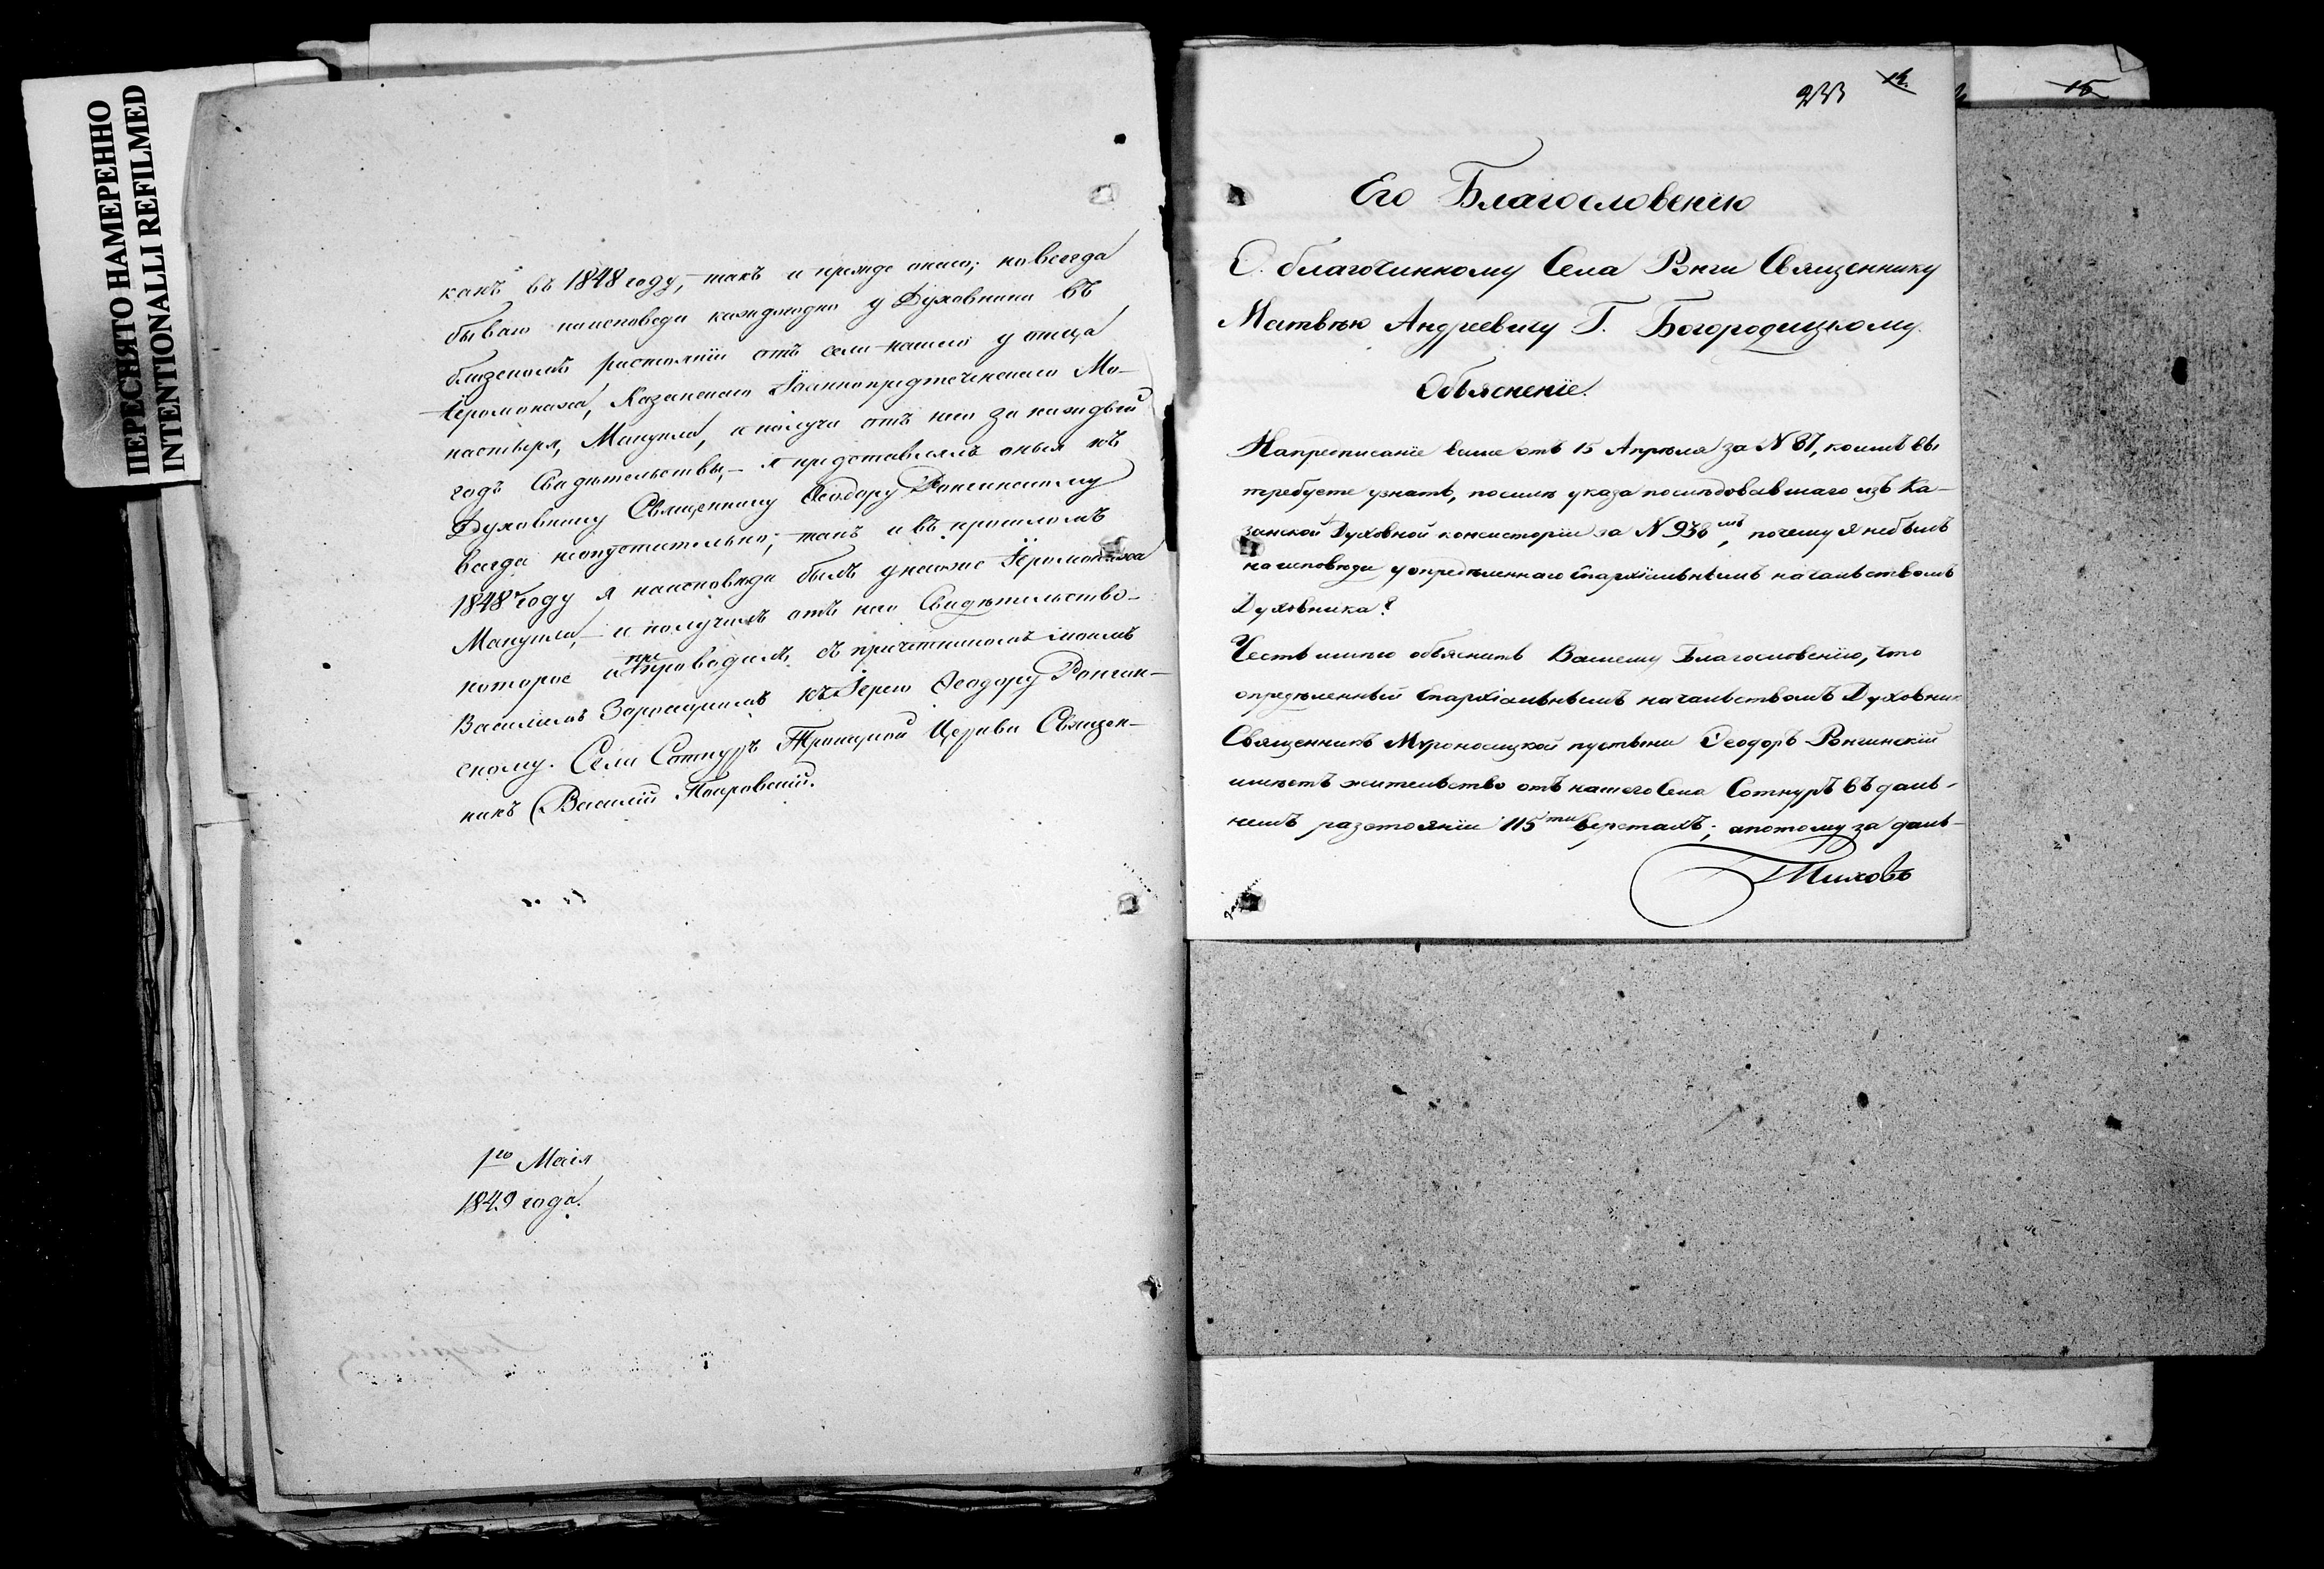 ПЕРЕСНЯТО НАМЕРЕННО
INTENTIONALLI REFILMED
какъ въ 1848 году, такъ и прежде онаго; но всегда
бываю наисповеди каждогодно у Духовника въ
близскомъ растоянiи отъ села нашего у отца
Iеромонаха, Казанскаго Iоаннопредтеченскаго Мо-
настыря, Мануила, и получа отъ него за каждый
годъ Свидѣтельствы, я представлялъ оныя къ
Духовнику Священнику Ѳеодору Ронгинскому
всегда неопустительно; такъ и въ прошломъ
1848 году я наисповѣди былъ у него же Iеромонаха
Мануила, и получилъ отъ него Свидѣтельство
которое и препроводилъ съ причетникомъ моимъ
Василiемъ къ Iерею Ѳеодору Ронгин-
скому. Села Сотнуръ Троицкой Церкви Священ-
никъ Василiй Покровскiй.
1го Маiя
1849 года.
233 14.
15
Его Благословенiю
О. благочинному Села Ронги Священнику
Матвѣю Андреевичу Г. Богородицкому.
Объясненiе.
Напредписанiе ваше отъ 15 Апрѣля за N 87, коимъ вы
требуете узнать, посилѣ указа послѣдовавшаго изъ Ка-
занской Духовной консисторiи за N 936мъ, почему я небылъ
наисповѣди у опредѣленнаго Епархiальнымъ начальствомъ
Духовника?
Честь имѣю объяснить Вашему Благословенiю, что
опредѣленный Епархiальнымъ начальствомъ Духовник
Священникъ Мѵроносицкой пустыни Ѳеодоръ Ронгинскiй
имѣетъ жительство отъ нашего Села Сотнуръ въ даль-
немъ разстоянiи 115ти верстахъ; апотому за даль-